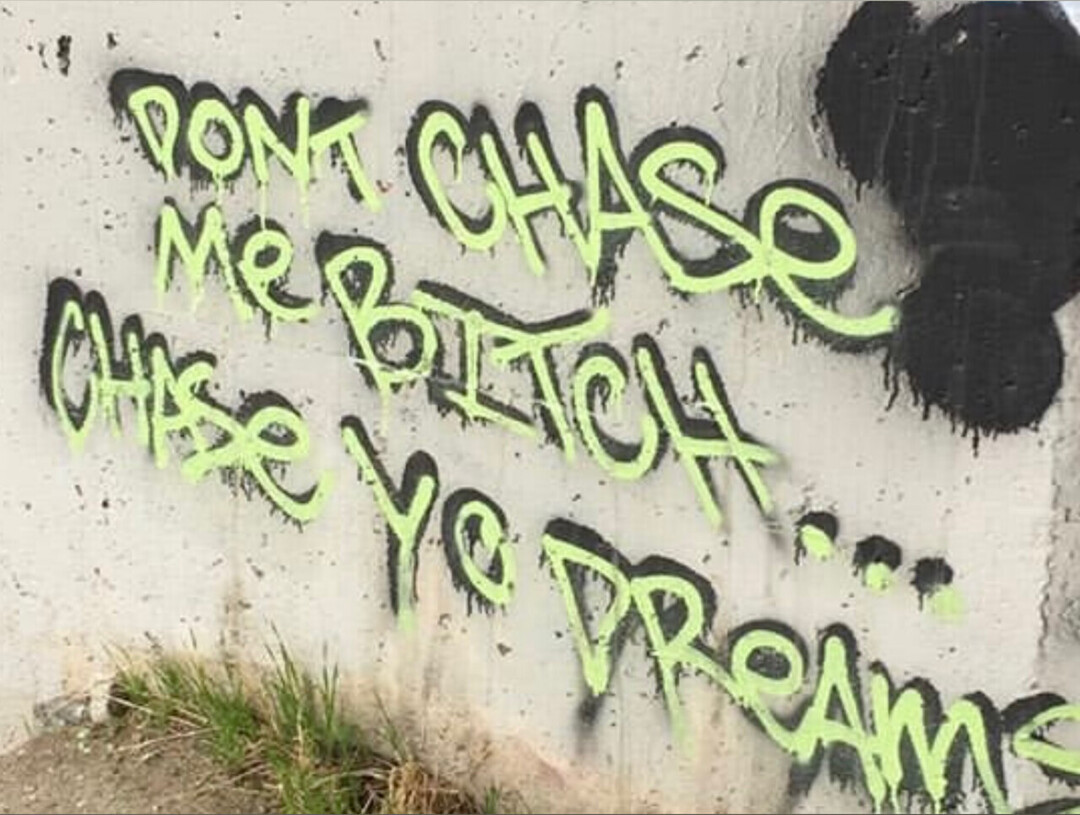 DONT CHASe
Me BITCH...
CHASe Yo DReAMS